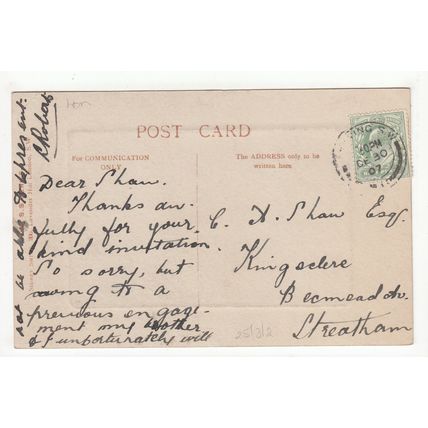 POST CARD
For COMMUNICATION
ONLY
The ADDRESS only to be
written here
Dear Shaw.
Thanks aw-
fully for your
kind invitation.
So sorry, but
owing to a
previous engage-
ment my brother
& I unfortunately will
not be able to be present.
C Roberts
C. A. Shaw Esq.
Kingsclere
Becmead Av.
Streatham
DE 30
07
25/3/2